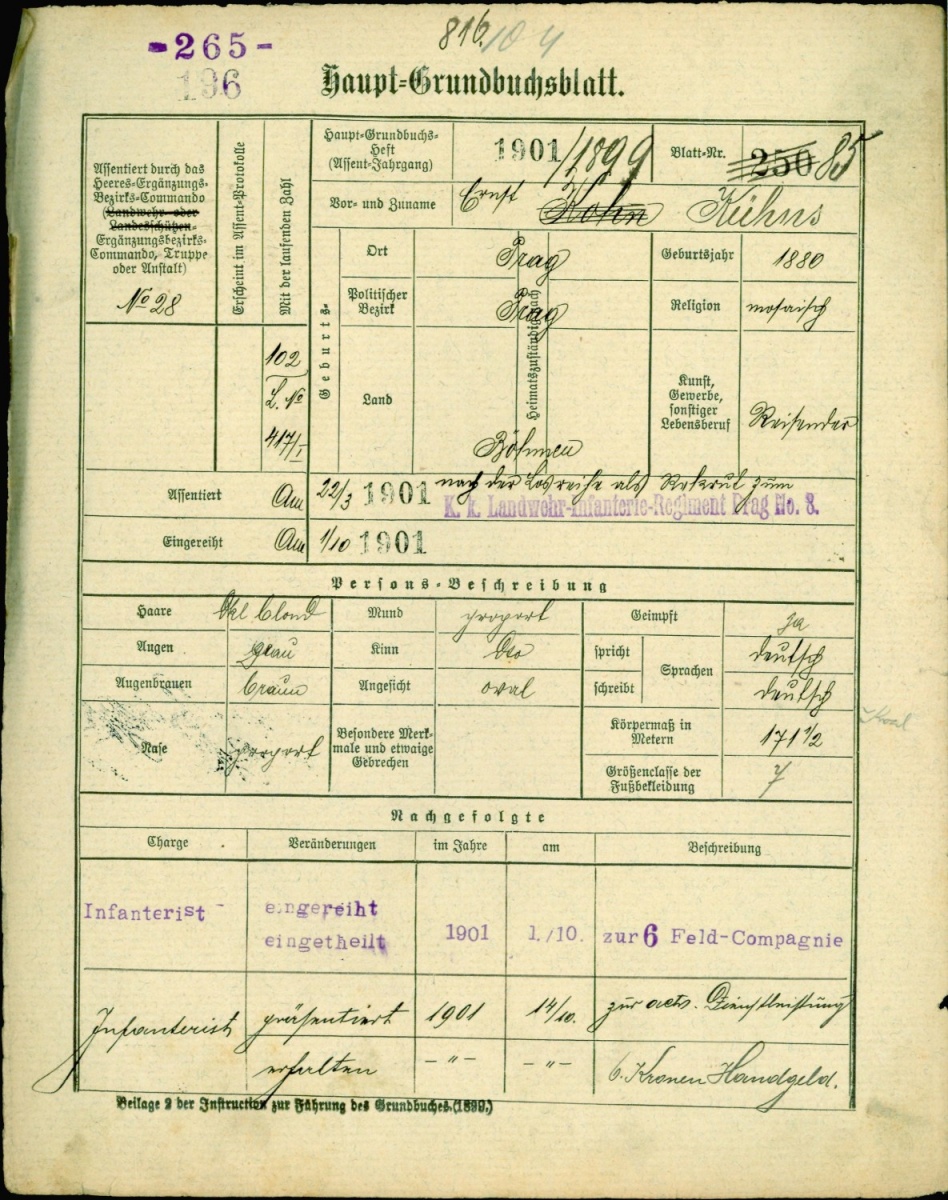 -265-
196
816
10 4
Haupt-Grundbuchsblatt.
Assentiert durch das
Heeres-Ergänzungs-
Bezirks-Commando
(Landwehr- oder
Landesschützen-
Ergänzungsbezirks-
Commando, Truppe
oder Anstalt)
No 28
Erscheint im Assent-Protokolle
Mit der laufenden Zahl
102
L. No
417/I
Haupt-Grundbuchs-
Heft
(Assent-Jahrgang)
1901/1899
Blatt-Nr.
250 85
Vor- und Zuname
Ernst Kohn Kühns
Geburts-
Ort
Prag
Politischer
Bezirk
Prag
Land
Böhmen
Heimatszuständig nach
Geburtsjahr
1880
Religion
mosaisch
Kunst,
Gewerbe,
sonstiger
Lebensberuf
Reisender
Assentiert
Am 22/3 1901 nach der Losreihe als Rekrut zum
K. k. Landwehr-Infanterie-Regiment Prag No. 8.
Eingereiht
Am 1/10 1901
Persons-Beschreibung
Haare
dkl blond
Mund
proport
Geimpft
ja
Augen
grau
Kinn
dto
spricht
Sprachen
deutsch
Augenbrauen
braun
Angesicht
oval
schreibt
deutsch
Nase
proport
Besondere Merk-
male und etwaige
Gebrechen
Körpermaß in
Metern
171 1/2
Größenclasse der
Fußbekleidung
7
Nachgefolgte
Charge
Veränderungen
im Jahre
am
Beschreibung
Infanterist
eingereiht
eingetheilt
1901
1./10.
zur 6 Feld-Compagnie
Infanterist
präsentiert
1901
14/10.
zur activ. Dienstleistung
erhalten
- " -
- " -
6. Kronen Handgeld.
Beilage 2 der Instruction zur Führung des Grundbuches. (1899.)